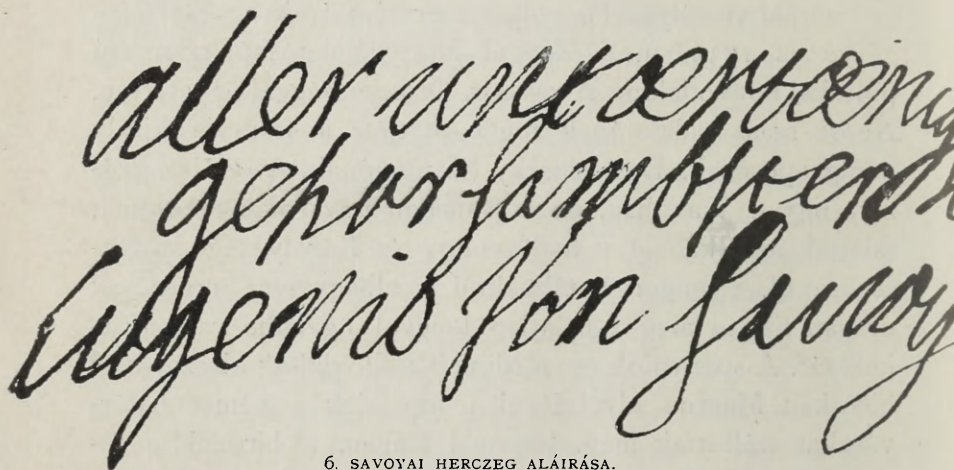 aller untertænig
gehorsambster d
Eugenio von Savoy
6. SAVOYAI HERCZEG ALÁIRÁSA.